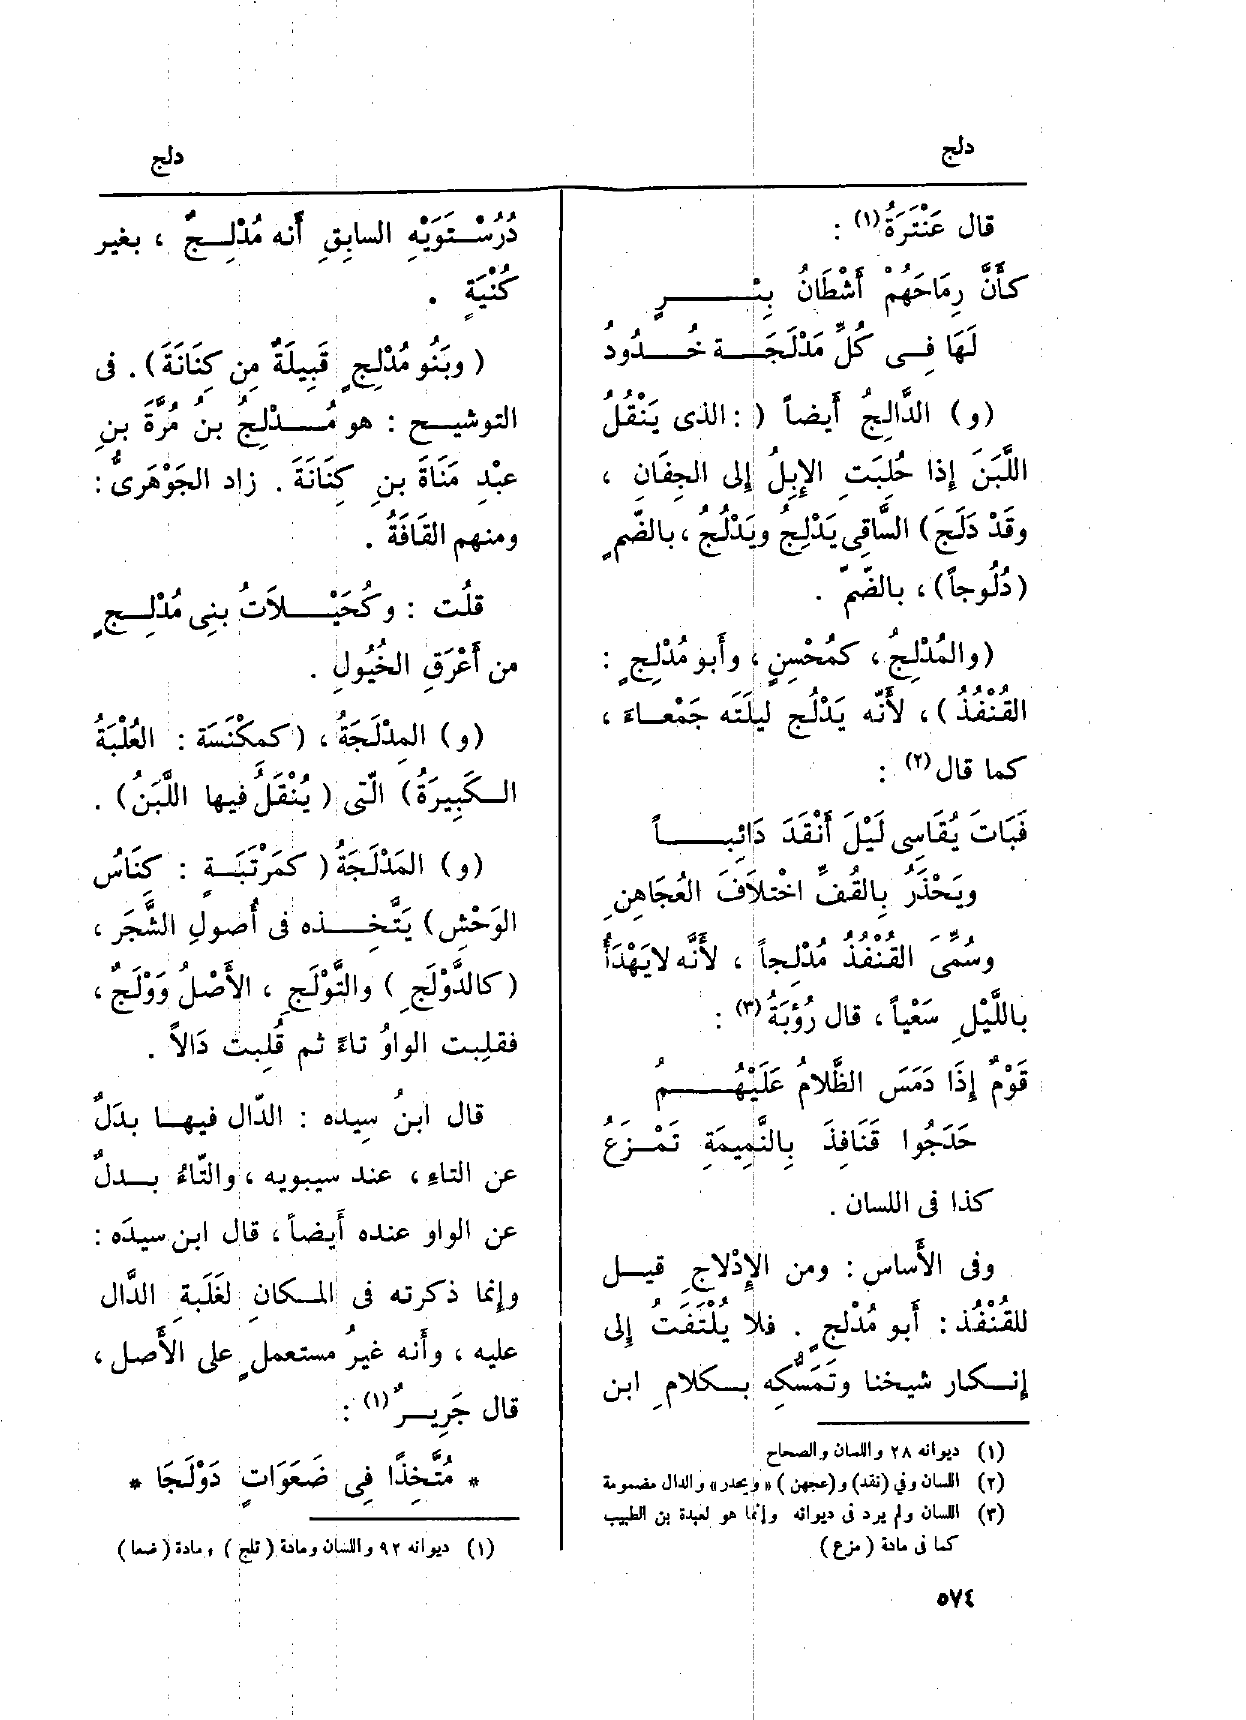 دلج
دلج
قال عَنْتَرَةُ(١) :
كأَنَّ رِمَاحَهُمْ أَشْطَانُ بِئْرٍ
لَهَا فِى كُلِّ مَدْلَجَة خُدُودُ
(و) الدَّالِجُ أَيضاً ( : الذى يَنْقُلُ
اللَّبَنَ إِذا حُلِبَتِ الإِبِلُ إِلى الجِفَانِ ،
وقَدْ دَلَجَ) السَّاقِى يَدْلِجُ ويَدْلُجُ ، بالضَّمِّ
(دُلُوجاً) ، بالضَّمّ .
(والمُدْلِجُ ، كمُحْسِنٍ ، وأَبو مُدْلِجٍ :
القُنْفُذُ) ، لأَنّه يَدْلُج ليلَتَه جَمْعاءَ ،
كما قال(٢) :
فَبَاتَ يُقَاسِى لَيْلَ أَنْقَدَ دَائِباً
ويَحْذَرُ بِالقُفِّ اخْتلاَفَ العُجَاهِنِ
وسُمِّىَ القُنْفُذُ مُدْلِجاً ، لأَنَّه لايَهْدَأُ
بالَّليْلِ سَعْياً ، قال رُؤبَةُ(٣) :
قَوْمٌ إِذَا دَمَسَ الظَّلامُ عَلَيْهُمُ
حَدَجُوا قَنَافِذَ بِالنَّمِيمَةِ تَمْزَعُ
كذا فى اللسان .
وفى الأَساس : ومن الإِدْلاجِ قيل
للقُنْفُذ : أَبو مُدْلِجٍ . فلا يُلْتَفَتُ إِلى
إِنكار شيخنا وتَمَسُّكِه بكلامِ ابن
(١) ديوانه ٢٨ واللسان والصحاح
(٢) اللسان وفي (نقد) و(عجهن) «ويحدر» والدال مضمومة
(٣) اللسان ولم يرد فى ديوانه وإنما هو لعبدة بن الطبيب
كما فى مادة (مزع)
دُرُسْتَوَيْهِ السابِقِ أَنه مُدْلِجٌ ، بغير
كُنْيَةٍ .
(وبَنُو مُدْلِجٍ قَبِيلَةٌ مِن كِنَانَةَ) . فى
التوشيح : هو مُدْلِجُ بن مُرَّةَ بنِ
عبْدِ مَنَاةَ بنِ كِنَانَةَ . زاد الجَوْهَرىُّ :
ومنهم القَافَةُ .
قلُت : وكُحَيْلاَتُ بنِى مُدْلِجٍ
من أَعْرَقِ الخُيُولِ .
(و) المِدْلَجَةُ ، (كمِكْنَسَة : العُلْبَةُ
الكَبِيرَةُ) الّتى (يُنْقَلُ فيها اللَّبَنُ) .
(و) المَدْلَجَةُ (كمَرْتَبَةٍ : كِنَاسُ
الوَحْشِ) يَتَّخِذه فى أُصولِ الشَّجَر ،
(كالدَّوْلَجِ ) والتَّوْلَجِ ، الأَصْلُ وَوْلَجٌ ،
فقلِبت الواوُ تاءً ثم قُلِبت دَالاً .
قال ابنُ سِيده : الدّال فيها بدَلٌ
عن التاءِ ، عند سيبويه ، والتّاءُ بدلٌ
عن الواو عنده أَيضاً ، قال ابن سيدَه :
وإِنما ذكرته فى المكانِ لغَلَبةِ الدَّال
عليه ، وأَنه غيرُ مستعملٍ على الأَصل ،
قال جَرِيرٌ(١) :
* مُتَّخِذًا فِى ضَعَوَاتٍ دَوْلَجَا *
(١) ديوانه ٩٢ واللسان ومادة (تلج) ومادة (ضعا)
٥٧٤